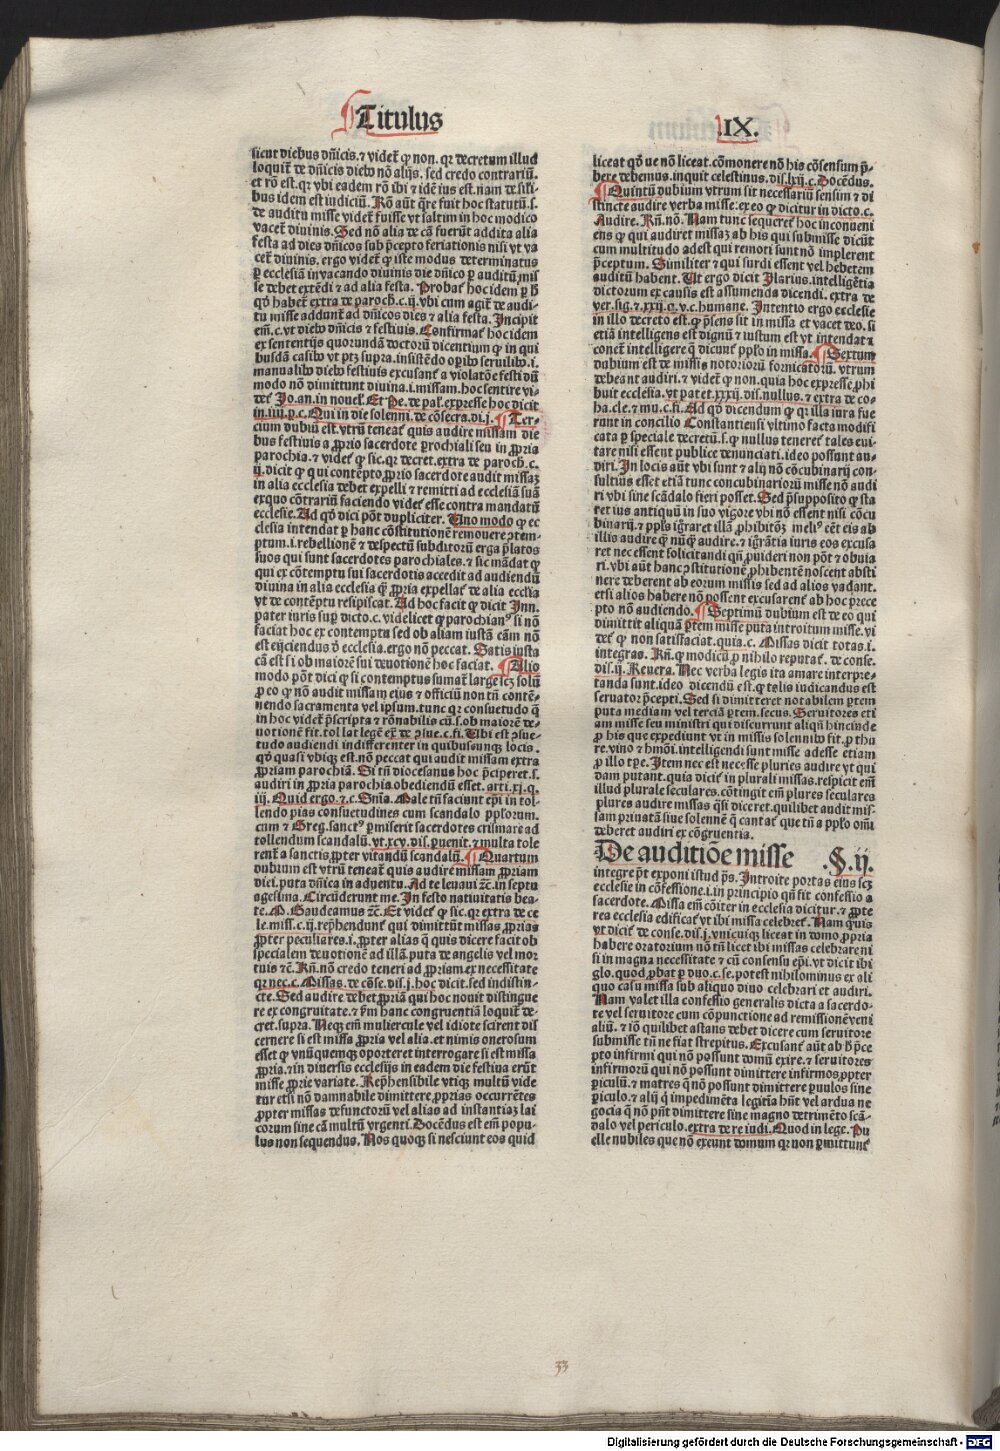 Titulus
.IX.
sicut diebus dñicis. ⁊ videt̃ ꝙ non. qꝛ decretum illud
loquit̃ de dñicis dieb⁹ nõ alijs. sed credo contrariũ.
et rõ est. qꝛ vbi eadem rõ ibi ⁊ idẽ ius est. nam de sili-
bus idem est iudiciũ. Rõ aũt q̃re fuit hoc statutũ. s.
de auditu misse videt̃ fuisse vt saltim in hoc modico
vacet̃ diuinis. Sed nõ alia de cã fuerũt addita alia
festa ad dies dñicos sub p̃cepto feriationis nisi vt va
cet̃ diuinis. ergo videt̃ ꝙ iste modus determinatus
ꝑ ecclesiã in vacando diuinis die dñico ꝑ auditũ mis
se debet extẽdi ⁊ ad alia festa. Probat̃ hoc idem ꝑ h̃
qð habet̃ extra de paroch̃. c. ij. vbi cum agit̃ de audi-
tu misse addunt̃ ad dñicos dies ⁊ alia festa. Incipit
em̃. c. vt dieb⁹ dñicis ⁊ festiuis. Confirmat̃ hoc idem
ex sententijs quorundã doctorũ dicentium ꝙ in qui
busdã casib⁹ vt ptꝫ supra. insistẽdo opib⁹ seruilib⁹. i.
manualib⁹ dieb⁹ festiuis excusant̃ a violatõe festi dũ
modo nõ dimittunt diuina. i. missam. hoc sentire vi-
det̃ Jo. an. in nouel̃. Et Pe. de pal̃. expresse hoc dicit
in. iiij. ꝑ. c. Qui in die solenni. de cõsecra. di. j. Ter-
cium dubiũ est. vtrũ teneat̃ quis audire missam die
bus festiuis a ꝓprio sacerdote ꝑrochiali seu in ꝓpria
parochia. ⁊ videt̃ ꝙ sic. qꝛ decret. extra de paroch̃. c.
ij. dicit ꝙ qui contẽpto ꝓprio sacerdote audit missaꝫ
in alia ecclesia debet expelli ⁊ remitti ad ecclesiã suã
exquo cõtrariũ faciendo videt̃ esse contra mandatũ
ecclesie. Ad qð dici põt dupliciter. Uno modo ꝙ ec
clesia intendat ꝑ hanc cõstitutionẽ remouere ꝯtem-
ptum. i. rebellionẽ ⁊ despectũ subditorũ erga p̃latos
suos qui sunt sacerdotes parochiales. ⁊ sic mãdat ꝙ
qui ex cõtemptu sui sacerdotis accedit ad audiendũ
diuina in alia ecclesia q̃ꝫ ꝓpria expellat̃ de alia ecclia
vt de contẽptu resipiscat. Ad hoc facit ꝙ dicit Inn.
pater iuris suꝑ dicto. c. videlicet ꝙ parochian⁹ si nõ
faciat hoc ex contemptu sed ob aliam iustã cãm nõ
est eijciendus d̃ ecclesia. ergo nõ peccat. Satis iusta
cã est si ob maiorẽ sui deuotionẽ hoc faciat. Alio
modo põt dici ꝙ si contemptus sumat̃ large scꝫ solũ
ꝓ eo ꝙ nõ audit missam eius ⁊ officiũ non tñ contẽ-
nendo sacramenta vel ipsum. tunc qꝛ consuetudo q̃
in hoc videt̃ p̃scripta ⁊ rõnabilis cũ. s. ob maiorẽ de-
uotionẽ fit. tollat legẽ ex̃ de ꝯsue. c. fi. Ubi est ꝯsue-
tudo audiendi indifferenter in quibuscunqꝫ locis.
qð quasi vbiqꝫ est. nõ peccat qui audit missam extra
ꝓpriam parochiã. Si tñ diocesanus hoc p̃ciperet. s.
audiri in ꝓpria parochia. obediendũ esset. arti. xj. q.
iij. Quid ergo. ⁊. c. Snĩa. Male tñ faciunt ep̃i in tol-
lendo pias consuetudines cum scandalo pplorum.
cum ⁊ Greg. sanct⁹ ꝑmiserit sacerdotes crismare ad
tollendum scandalũ. vt. xcv. dis. ꝑuenit. ⁊ multa tole
rent̃ a sanctis ꝓpter vitandũ scandalũ. Quartum
dubium est vtrũ teneat̃ quis audire missam ꝓpriam
dici. puta dñica in aduentu. Ad te leuaui ⁊c̃. in septu
agesima. Circũderunt me. In festo natiuitatis bea-
te. M. Gaudeamus ⁊c̃. Et videt̃ ꝙ sic. qꝛ extra de ce
le. miss. c. ij. rep̃hendunt̃ qui dimittũt missas ꝓprias
ꝓpter peculiares. i. ꝓpter alias q̃ quis dicere facit ob
specialem deuotionẽ ad illã. puta de angelis vel mor
tuis ⁊c̃. Rñ. nõ credo teneri ad ꝓpriam ex necessitate
qꝛ nec. c. Missas. de cõse. dis. j. hoc dicit. sed indistin-
cte. Sed audire debet ꝓpriã qui hoc nouit distingue
re ex congruitate. ⁊ ꝟm hanc congruentiã loquit̃ de-
cret. supra. Neqꝫ em̃ muliercule vel idiote scirent dis
cernere si est missa ꝓpria vel alia. et nimis onerosum
esset ꝙ vnũquemqꝫ oporteret interrogare si est missa
ꝓpria. ⁊ in diuersis ecclesijs in eadem die festiua erũt
misse ꝓprie variate. Rep̃hensibile vtiqꝫ multũ vide
tur etsi nõ damnabile dimittere ꝓprias occurrẽtes
ꝓpter missas defunctorũ vel alias ad instantiaꝫ lai
corum sine cã multũ vrgenti. Docẽdus est em̃ popu-
lus non sequendus. Nos quoqꝫ si nesciunt eos quid
liceat qð ue nõ liceat. cõmonere nõ his cõsensum p̃-
bere debemus. inquit celestinus. dis. lxij. c. Docẽdus.
Quintũ dubium vtrum sit necessariũ sensim ⁊ di
stincte audire verba misse: ex eo ꝙ dicitur in dicto. c.
Audire. Rñ. nõ. Nam tunc sequeret̃ hoc inconueni
ens ꝙ qui audiret missaꝫ ab his qui submisse dicũt
cum multitudo adest qui remoti sunt nõ implerent
p̃ceptum. Similiter ⁊ qui surdi essent vel hebetem
auditũ habent. Ut ergo dicit Ilarius. intelligẽtia
dictorum ex causis est assumenda dicendi. extra de
ver. sig. ⁊. xxij. q. v. c. humane. Intentio ergo ecclesie
in illo decreto est. ꝙ p̃sens sit in missa et vacet deo. si
etiã intelligens est dignũ ⁊ iustum est vt intendat ⁊
conet̃ intelligere q̃ dicunt̃ pplo in missa. Sextum
dubium est de missis notoriorũ fornicatorũ. vtrum
debeant audiri. ⁊ videt̃ ꝙ non. quia hoc expresse ꝓhi
buit ecclesia. vt patet. xxxij. dis. nullus. ⁊ extra de co-
ha. cle. ⁊ mu. c. fi. Ad qð dicendum ꝙ qꝛ illa iura fue
runt in concilio Constantiensi vltimo facta modifi
cata ꝑ speciale decretũ. s. ꝙ nullus teneret̃ tales eui
tare nisi essent publice denunciati. ideo possunt au-
diri. In locis aũt vbi sunt ⁊ alij nõ cõcubinarij con
sultius esset etiã tunc concubinariorũ misse nõ audi
ri vbi sine scãdalo fieri posset. Sed p̃supposito ꝙ sta
ret ius antiquũ in suo vigore vbi nõ essent nisi cõcu
binarij. ⁊ ppl̃s ignraret illã ꝓhibitõꝫ meli⁹ eẽt eis ab
illis audire ꝙ nũꝙ audire. ⁊ igrãtia iuris eos excusa
ret nec essent solicitandi qñ ꝓuideri non põt ⁊ obuia
ri. vbi aũt hanc ꝯstitutionẽ ꝓhibentẽ noscent absti
nere deberent ab eorum missis sed ad alios vadant.
etsi alios habere nõ possent excusarent̃ ab hoc p̃ce
pto nõ audiendo. Septimũ dubium est de eo qui
dimittit aliquã ꝑtem misse puta introitum misse. vi
det̃ ꝙ non satisfaciat. quia. c. Missas dicit totas. i.
integras. Rñ. ꝙ modicũ ꝓ nihilo reputat̃. de conse.
dis. ij. Reuera. Nec verba legis ita amare interpre-
tanda sunt. ideo dicendũ est. ꝙ talis iudicandus est
seruator p̃cepti. Sed si dimitteret notabilem ꝑtem
puta mediam vel terciã ꝑtem. secus. Seruitores eti
am misse seu ministri qui discurrunt aliqñ hincinde
ꝓ his que expediunt vt in missis solennib⁹ fit. ꝓ thu
re. vino ⁊ hmõi. intelligendi sunt misse adesse etiam
ꝓ illo tꝑe. Item nec est necesse pluries audire vt qui
dam putant. quia dicit̃ in plurali missas. respicit em̃
illud plurale seculares. cõtingit em̃ plures seculares
plures audire missas qsi diceret. quilibet audit mis-
sam priuatã siue solennẽ q̃ cantat̃ que tñ a pplo om̃i
deberet audiri ex cõgruentia.
De auditiõe misse .§. ij.
integre p̃t exponi istud ps̃. Introite portas eius scꝫ
ecclesie in cõfessione. i. in principio qñ fit confessio a
sacerdote. Missa em̃ cõiter in ecclesia dicitur. ⁊ ꝓpte
rea ecclesia edificat̃ vt ibi missa celebret̃. Nam quis
vt dicit̃ de conse. dis. j. vnicuiqꝫ liceat in domo ꝓpria
habere oratorium nõ tñ licet ibi missas celebrare ni
si in magna necessitate ⁊ cũ consensu ep̃i. vt dicit ibi
glo. quod ꝓbat ꝑ duo. c. se. potest nihilominus ex ali
quo casu missa sub aliquo diuo celebrari et audiri.
Nam valet illa confessio generalis dicta a sacerdo-
te vel seruitore cum cõpunctione ad remissionẽ veni
aliũ. ⁊ iõ quilibet astans debet dicere cum seruitore
submisse tñ ne fiat strepitus. Excusant̃ aũt ab h̃ p̃ce
pto infirmi qui nõ possunt domũ exire. ⁊ seruitores
infirmorũ qui nõ possunt dimittere infirmos ꝓpter
ꝑiculũ. ⁊ matres q̃ nõ possunt dimittere ꝑuulos sine
ꝑiculo. ⁊ alij q̃ impedimẽta legitĩa hñt vel ardua ne
gocia q̃ nõ pñt dimittere sine magno detrimẽto scã-
dalo vel periculo. extra de re iudi. Quod in lege. Pu
elle nubiles que nõ exeunt domum qꝛ non ꝑmittunt̃
33
Digitalisierung gefördert durch die Deutsche Forschungsgemeinschaft - DFG